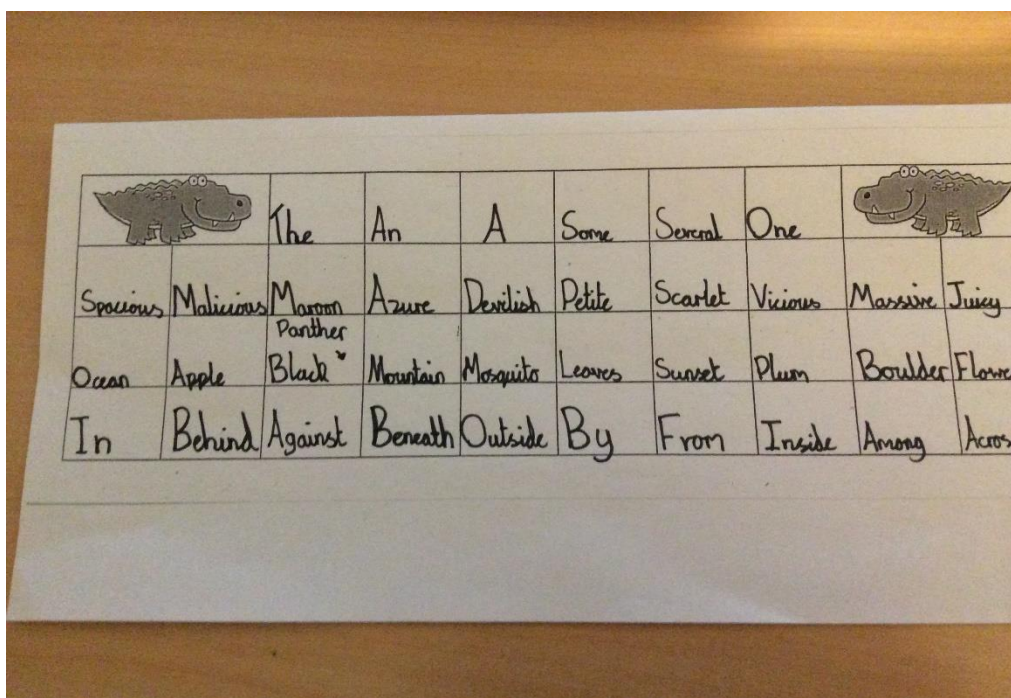 The An A Some Several One
Spacious Malicious Maroon Azure Devilish Petite Scarlet Vicious Massive Juicy
Panther
Ocean Apple Black Mountain Mosquito Leaves Sunset Plum Boulder Flowe
In Behind Against Beneath Outside By From Inside Among Acros